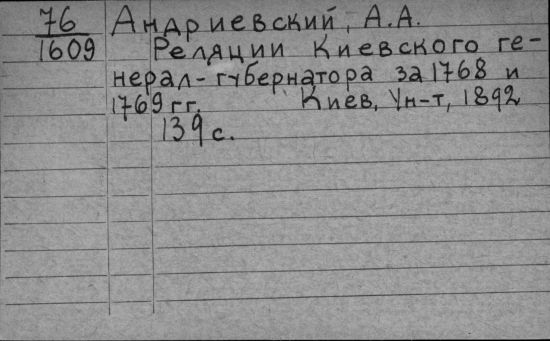 76 Андриевский, А.А.
1609 Реляции Киевского ге-
нерал-губернатора за 1768 и
1769 гг. Киев, Ун-т, 1892
139 с.